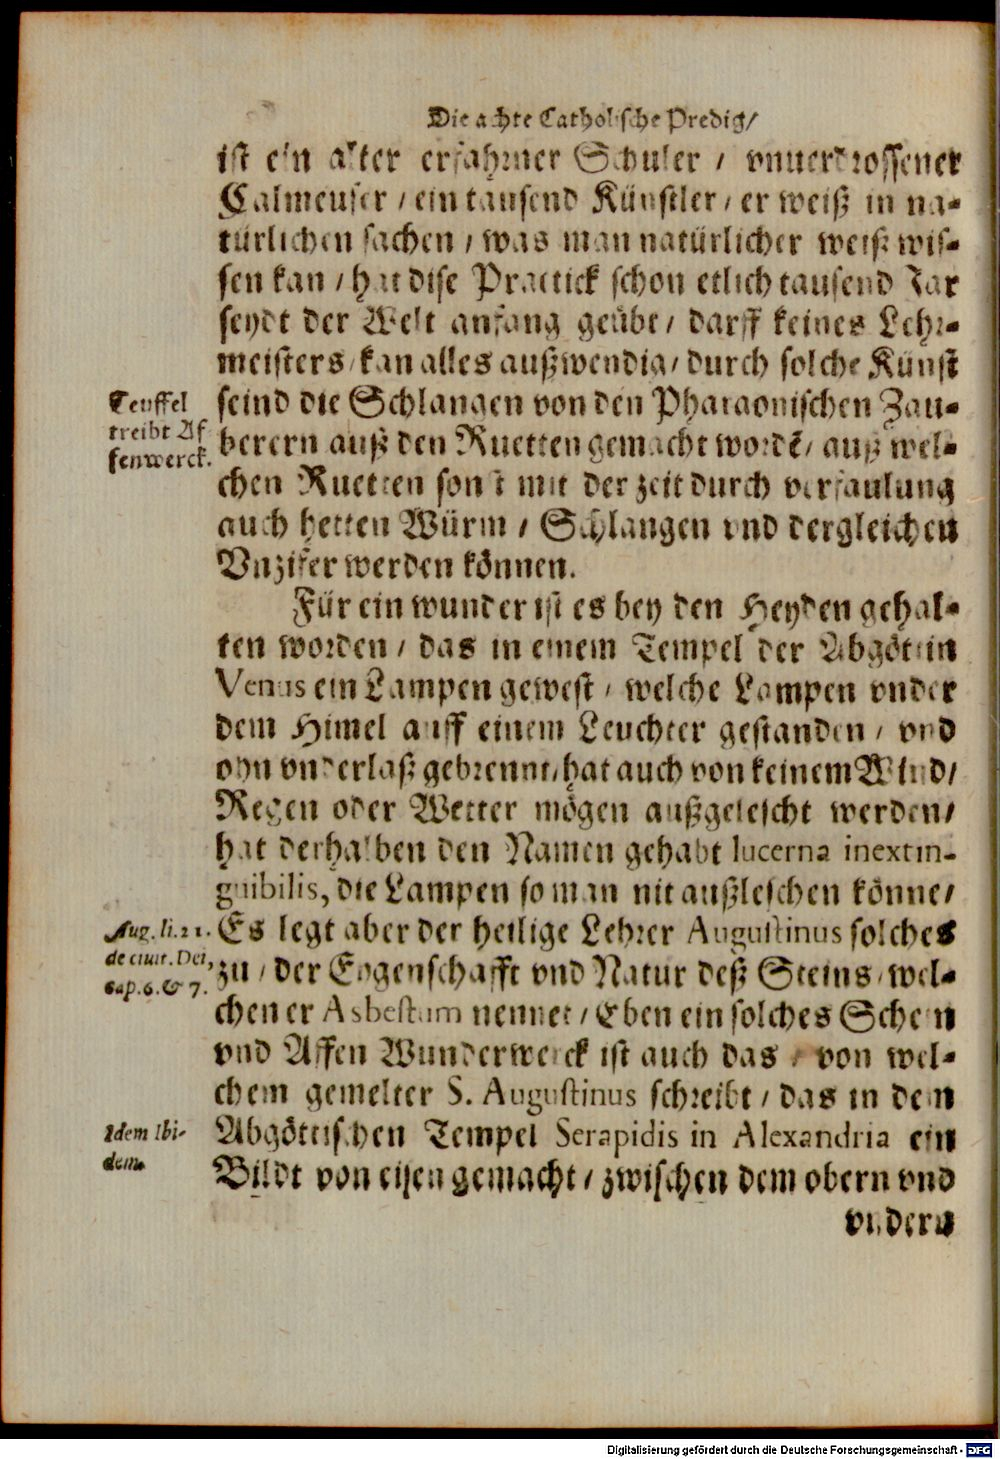 Die achte Catholische Predig/
ist ein alter erfahrner Schuler / vnuerdrossener
Calmeuser / ein tausend Künstler / er weiß in na-
türlichen sachen / was man natürlicher weiß wis-
sen kan / hat dise Practick schon etlich tausend Jar
seydt der Welt anfang geübt / darff keines Lehr-
meisters / kan alles außwendig / durch solche Künst
Teuffel
treibt Af
fenwerck.
seind die Schlangen von den Pharaonischen Zau-
berern auß den Ruetten gemacht wordē / auß wel-
chen Ruetten sonst mit der zeit durch verfaulung
auch hetten Würm / Schlangen vnd dergleichen
Vnzifer werden können.
Für ein wunder ist es bey den Heyden gehal-
ten worden / das in einem Tempel der Abgöttin
Venus ein Lampen gewest / welche Lampen vnder
dem Himel auff einem Leuchter gestanden / vnd
ohn vnderlaß gebrennt / hat auch von keinem Wind/
Regen oder Wetter mögen außgelescht werden/
hat derhalben den Namen gehabt lucerna inextin-
guibilis, die Lampen so man nit außleschen könne/
Aug. li. 21.
de ciuit. Dei,
cap. 6. & 7.
Es legt aber der heilige Lehrer Augustinus solches
zu / der Eygenschafft vnd Natur deß Steins / wel-
chen er Asbestum nennet / Eben ein solches Schein
vnd Affen Wunderwerck ist auch das / von wel-
chem gemelter S. Augustinus schreibt / das in dem
Idem Ibi-
dem.
Abgöttischen Tempel Serapidis in Alexandria ein
Bildt von eisen gemacht / zwischen dem obern vnd
vndern
Digitalisierung gefördert durch die Deutsche Forschungsgemeinschaft - DFG